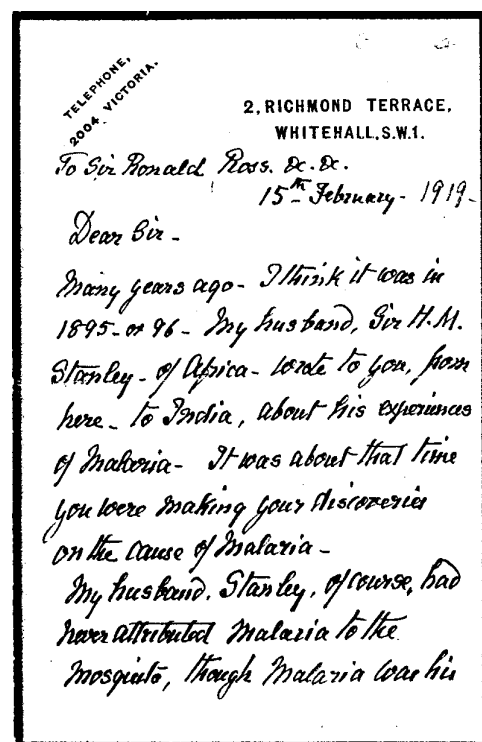 TELEPHONE,
2004 VICTORIA.
2, RICHMOND TERRACE,
WHITEHALL, S.W.1.
To Sir Ronald Ross. &c. &c.
15th February - 1919 -
Dear Sir -
Many years ago - I think it was in
1895 - or 96 - My husband, Sir H. M.
Stanley - of Africa - wrote to you, from
here - to India, about his experiences
of Malaria - It was about that time
you were making your discoveries
on the cause of Malaria -
My husband, Stanley, of course, had
never attributed Malaria to the
Mosquito, though Malaria was his